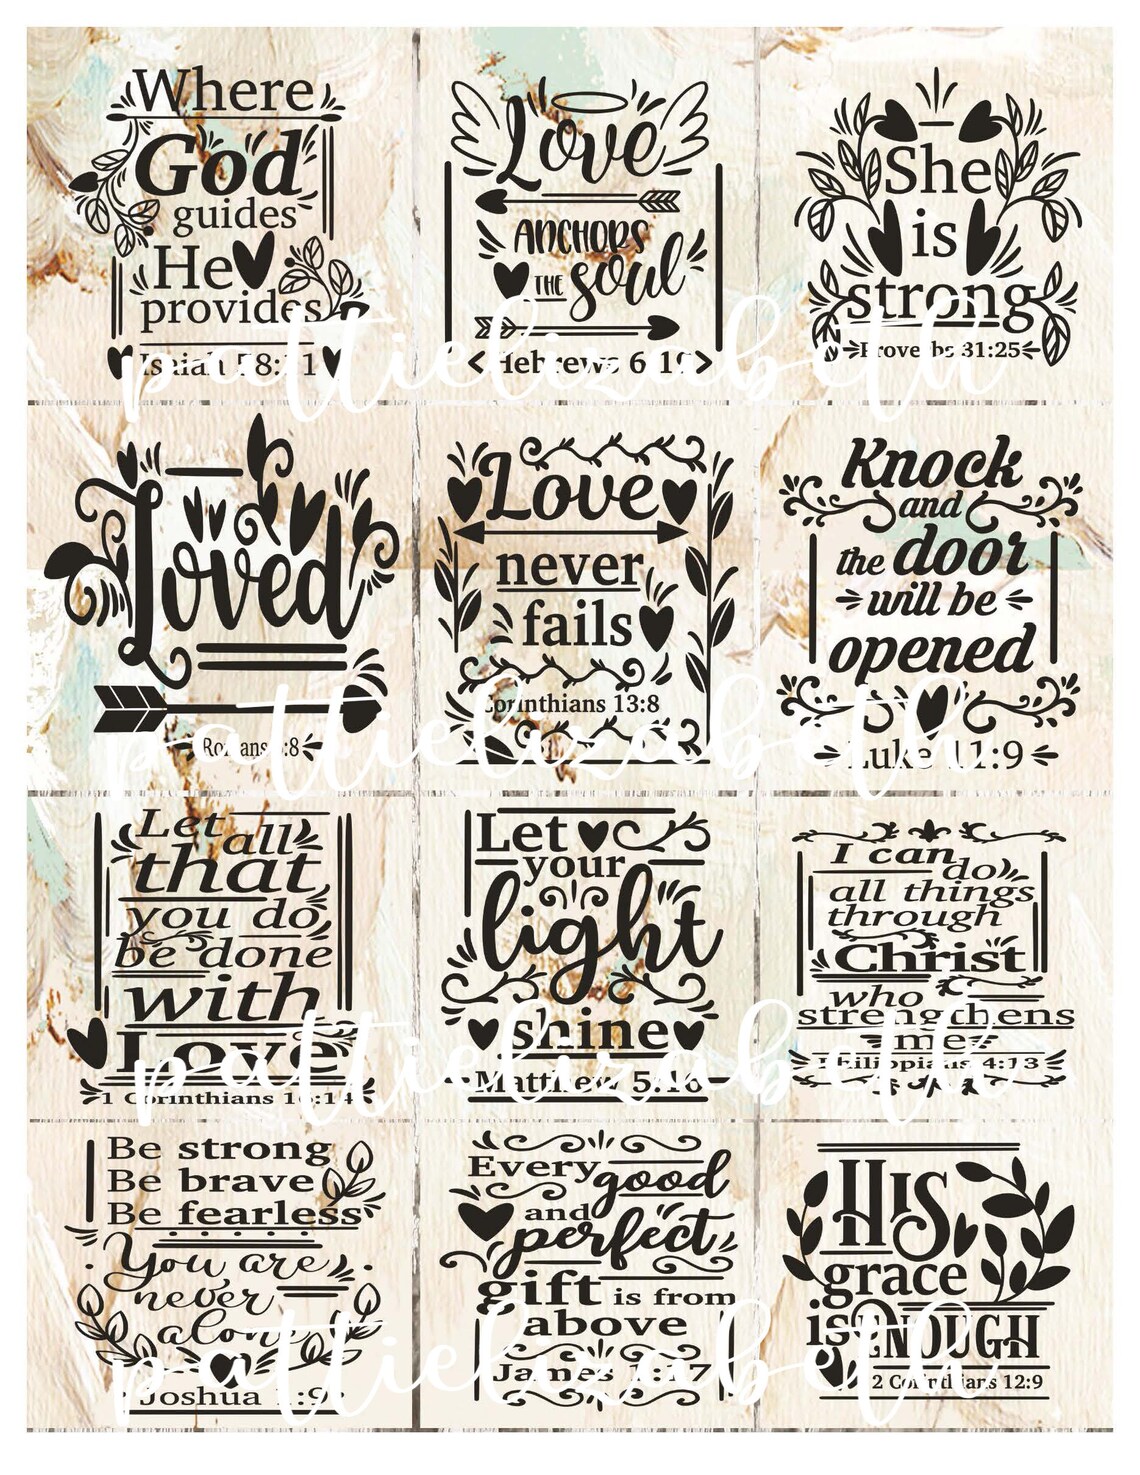 Where
God
guides
He
provides
Isaiah 58:11
Love
ANCHORS
THE soul
Hebrews 6:19
She
is
strong
Proverbs 31:25
pattielizabeth
Loved
Romans 5:8
Love
never
fails
Corinthians 13:8
Knock
and
the door
will be
opened
Luke 11:9
pattielizabeth
Let all
that
you do
be done
with
Love
1 Corinthians 16:14
Let
your
light
shine
Matthew 5:16
I can do
all things
through
Christ
who
strengthens
me
Philippians 4:13
pattielizabeth
Be strong
Be brave
Be fearless
You are
never
alone
Joshua 1:9
Every good
and perfect
gift is from
above
James 1:17
HIS
grace
is ENOUGH
2 Corinthians 12:9
pattielizabeth